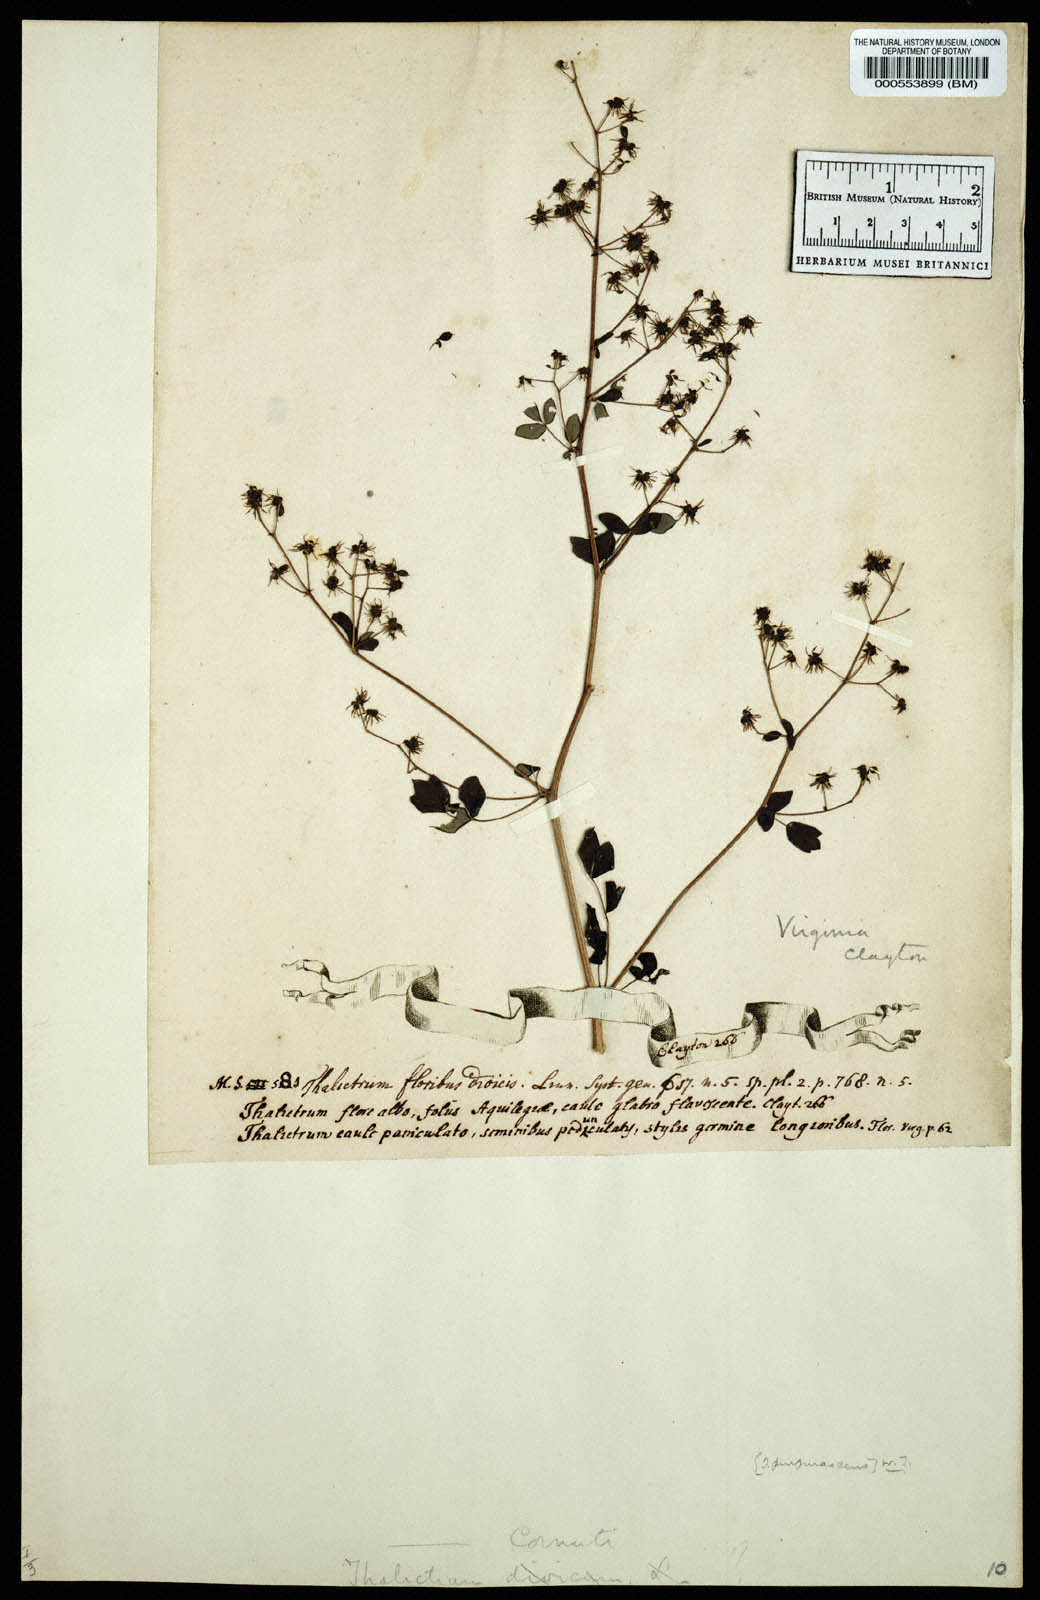 THE NATURAL HISTORY MUSEUM, LONDON
DEPARTMENT OF BOTANY
000553899 (BM)
1 2
BRITISH MUSEUM (NATURAL HISTORY)
1 2 3 4 5
HERBARIUM MUSEI BRITANNICI
Virginia
Clayton
Clayton 266
Thalictrum floribus dioicis. Linn. Syst. gen. 657. n. 5. sp. pl. 2. p. 768. n. 5.
Thalictrum flore albo, foliis Aquilegiæ, caule glabro flavescente. Clayt. 266
Thalictrum caule paniculato, seminibus pedunculatis, stylis germine longioribus. Flor. Virg. p. 62
Cornuti
Thalictrum dioicum, L.
10